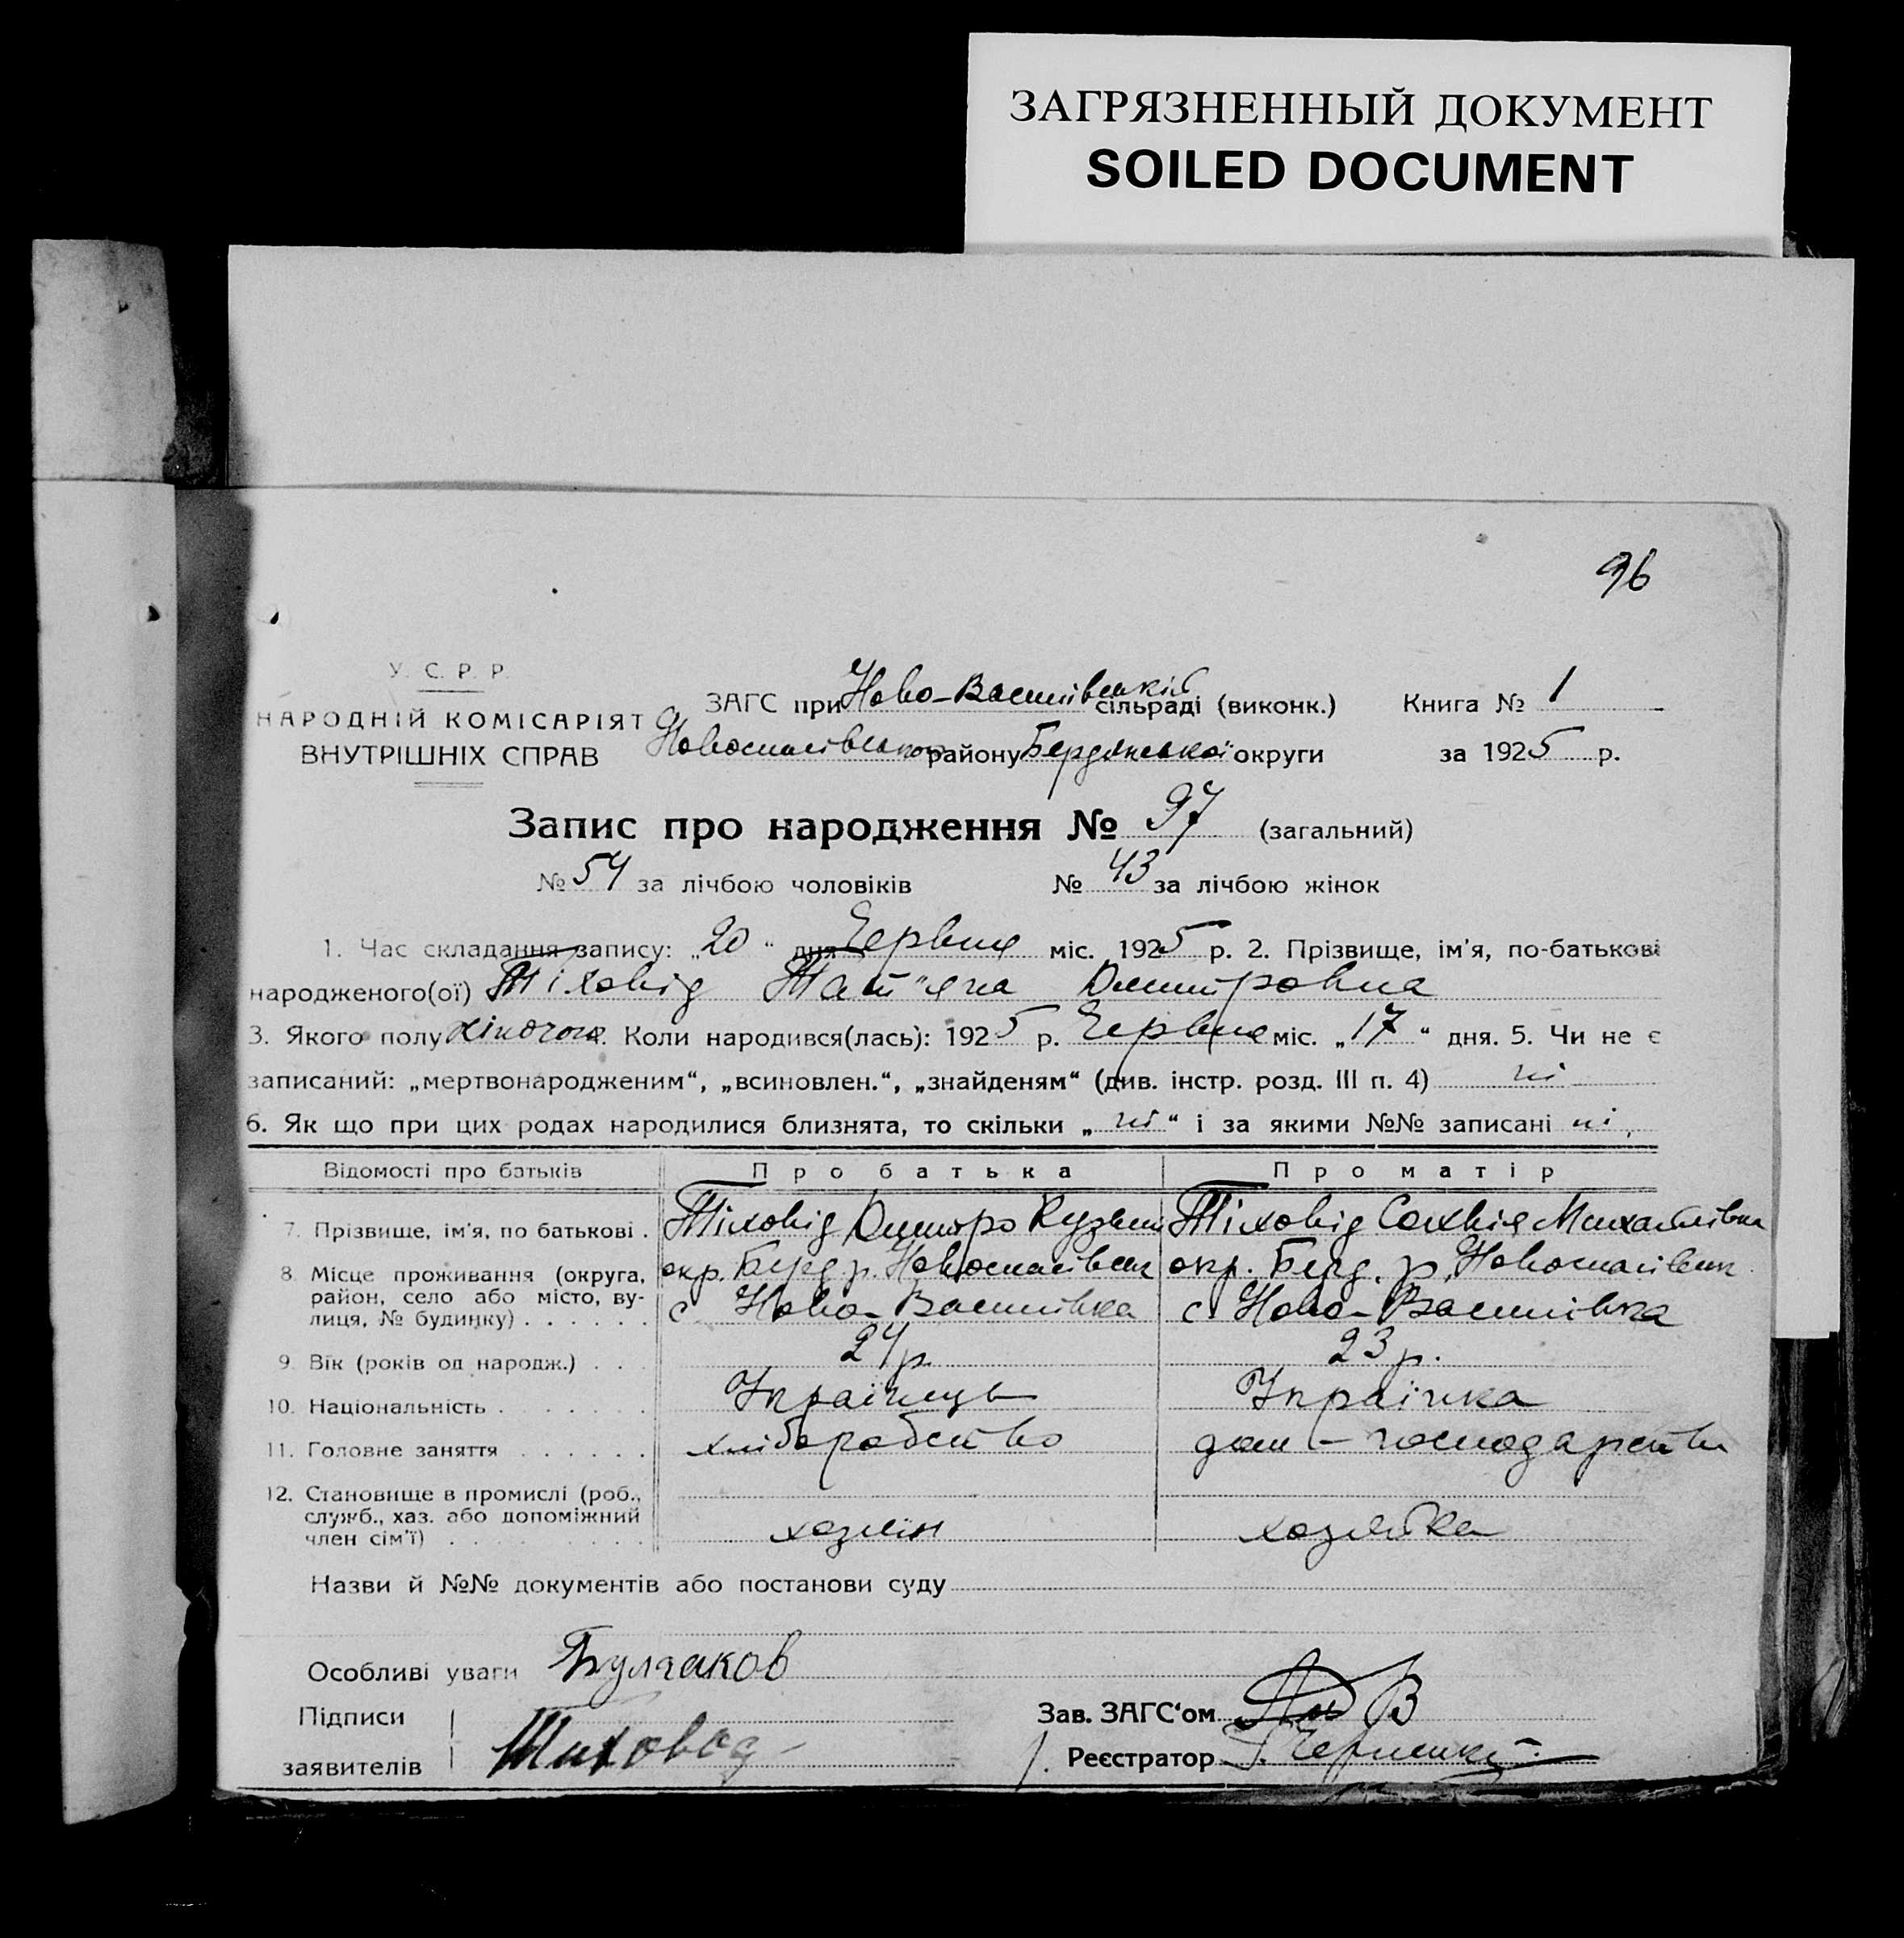 ЗАГРЯЗНЕННЫЙ ДОКУМЕНТ
SOILED DOCUMENT
96
У. С. Р. Р.
НАРОДНІЙ КОМІСАРІЯТ
ВНУТРІШНІХ СПРАВ
ЗАГС при Ново-Василівській сільраді (виконк.) Книга № 1
Новоспасівського району Бердянської округи за 1925 р.
Запис про народження № 97 (загальний)
№ 54 за лічбою чоловіків № 43 за лічбою жінок
1. Час складання запису: „20“ дня Червня міс. 1925 р. 2. Прізвище, ім'я, по-батькові
народженого(ої) Тіховід Тат"яна Дмитровна
3. Якого полу жіночого 4. Коли народився(лась): 1925 р. Червня міс. „17“ дня. 5. Чи не є
записаний: „мертвонародженим“, „всиновлен.“, „знайденям“ (див. інстр. розд. III п. 4) ні
6. Як що при цих родах народилися близнята, то скільки „ні“ і за якими №№ записані ні,
Відомості про батьків Про батька Про матір
7. Прізвище, ім'я, по батькові . Тіховід Дмитро Кузьм Тіховід Софія Михайлівна
8. Місце проживання (округа, район, село або місто, вулиця, № будинку) . . . . . . окр. Берд. р. Новоспасівськ окр. Берд. р. Новоспасівськ
с Ново-Василівка с Ново-Василівка
9. Вік (років од народж.) . . . 24 р. 23 р.
10. Національність . . . . . . . Українець Українка
11. Головне заняття . . . . . . хліборобство дом-господарств
12. Становище в промислі (роб., служб., хаз. або допоміжний член сім'ї) . . . . . . . . хозяїн хозяйка
Назви й №№ документів або постанови суду
Особливі уваги Булгаков
Підписи
заявителів Тиховод
Зав. ЗАГС'ом
Реєстратор